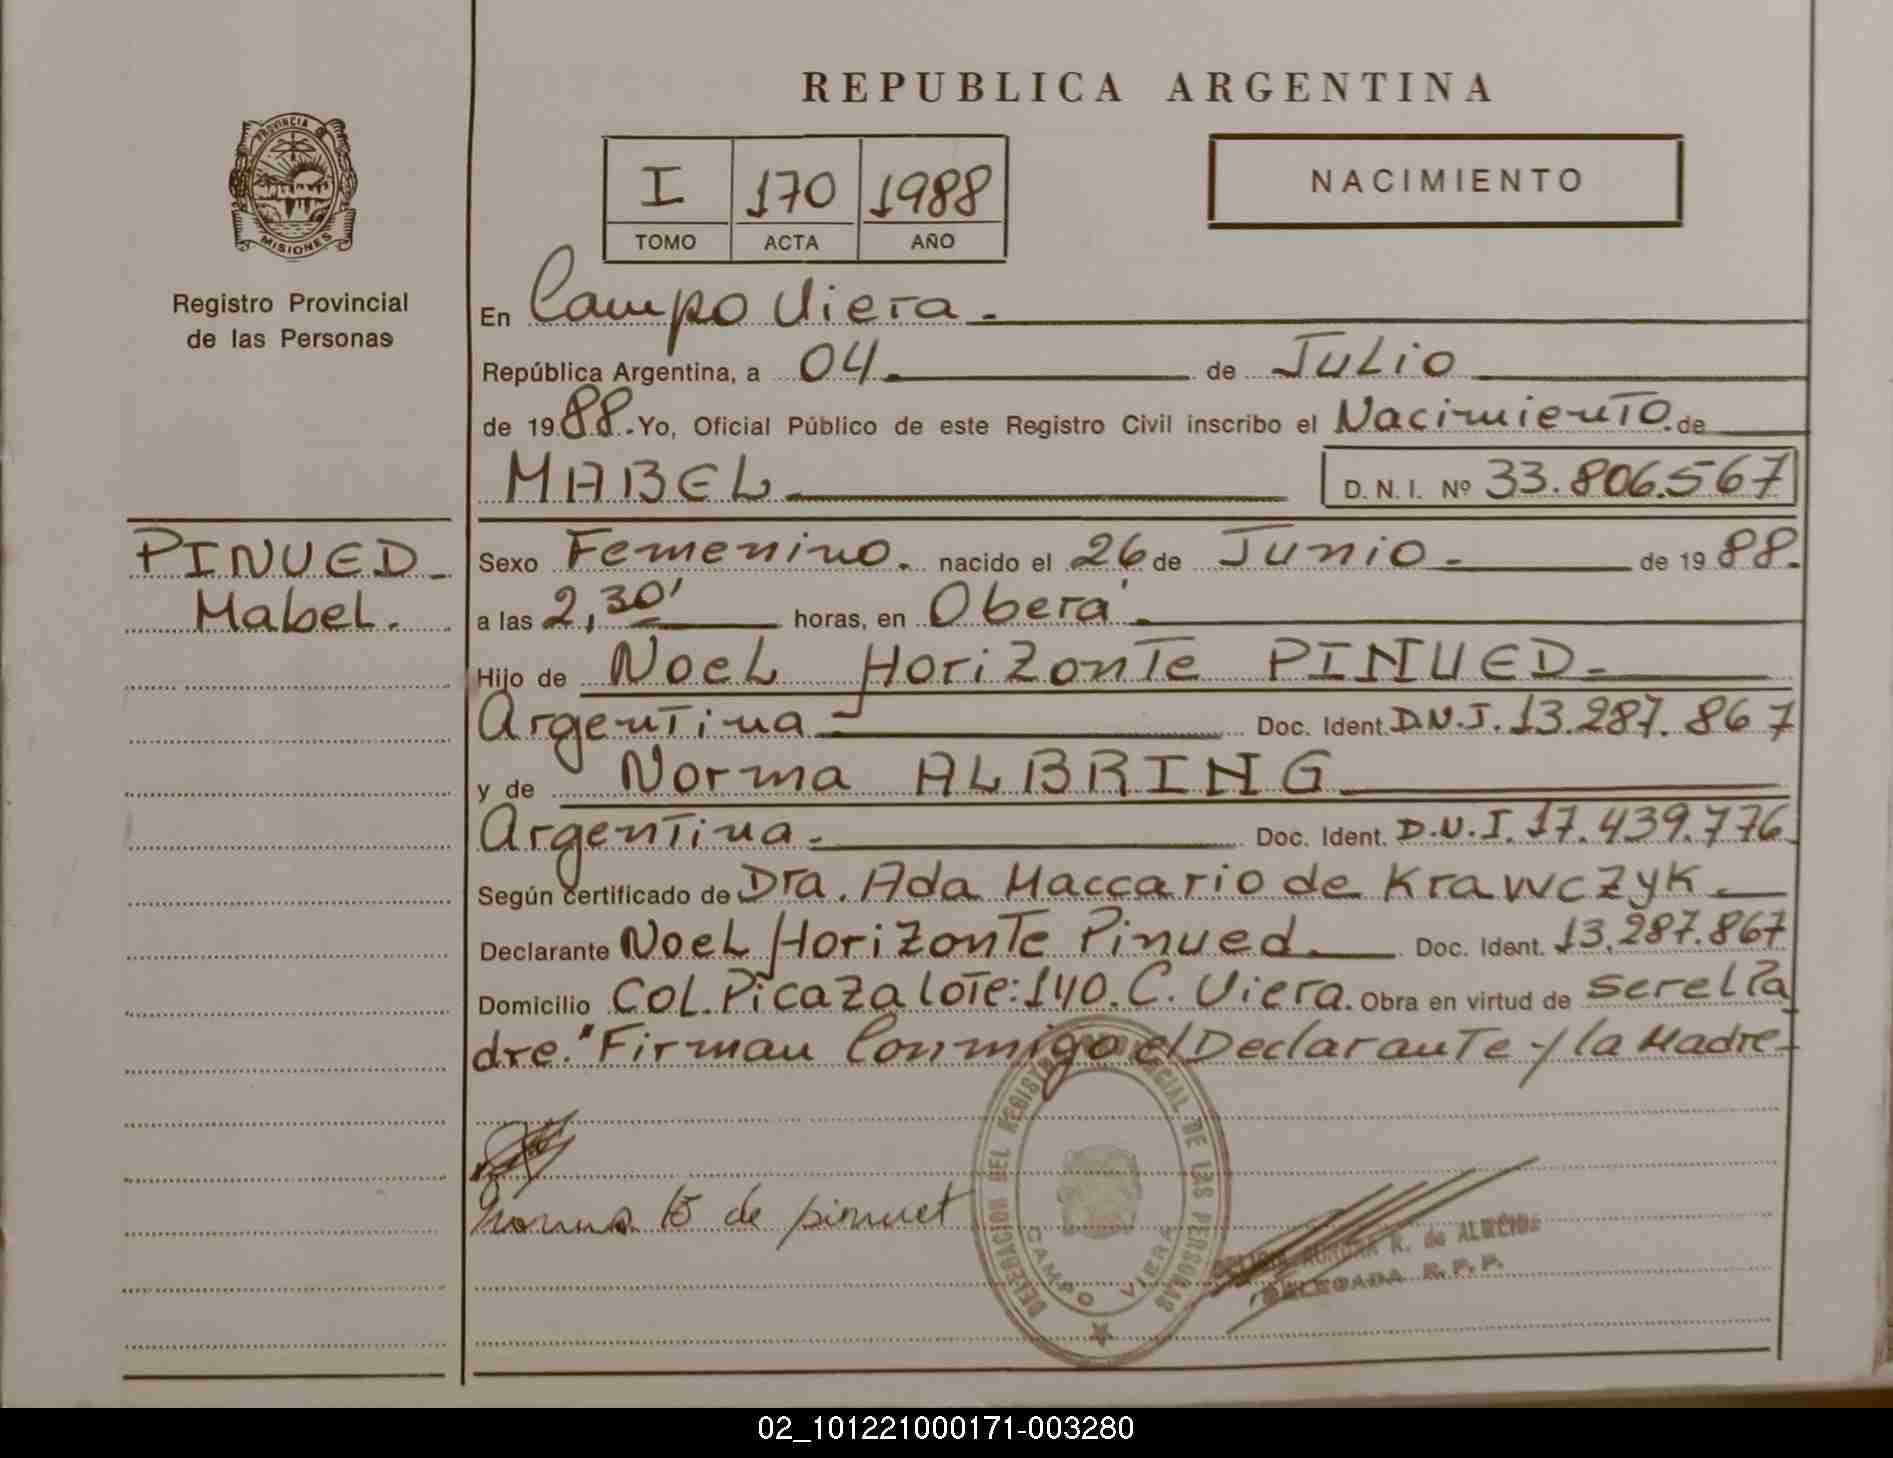 REPUBLICA ARGENTINA
PROVINCIA D
MISIONES
Registro Provincial
de las Personas
I 170 1988
TOMO ACTA AÑO
NACIMIENTO
En Campo Viera.-
República Argentina, a 04. de Julio
de 1988. Yo, Oficial Público de este Registro Civil inscribo el Nacimiento de
MABEL D. N. I. Nº 33.806.567
PINUED
Mabel.
Sexo Femenino. nacido el 26 de Junio.- de 19 88.
a las 2,30' horas, en Oberá.
Hijo de Noel Horizonte PINUED.-
Argentina Doc. Ident. D.N.I. 13.287.867
y de Norma ALBRING
Argentina.- Doc. Ident. D.N.I. 17.439.776
Según certificado de Dra. Ada Maccario de Krawczyk.
Declarante Noel Horizonte Pinued. Doc. Ident. 13.287.867
Domicilio Col. Picaza lote: 140. C. Viera. Obra en virtud de ser el Pa
dre." Firman Conmigo el Declarante y la Madre-
de pinuet
DELEGACION DEL REGISTRO PROVINCIAL DE LAS PERSONAS
CAMPO VIERA
AURORA R. de ALMEIDA
DELEGADA R. P. P.
02_101221000171-003280